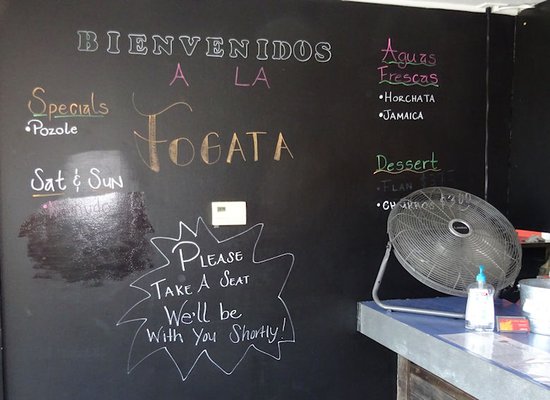 BIENVENIDOS
A LA
FOGATA
Specials
•Pozole
Sat & Sun
Aguas
Frescas
•Horchata
•Jamaica
Dessert
•Flan
Please
Take A Seat
We'll be
With You Shortly!